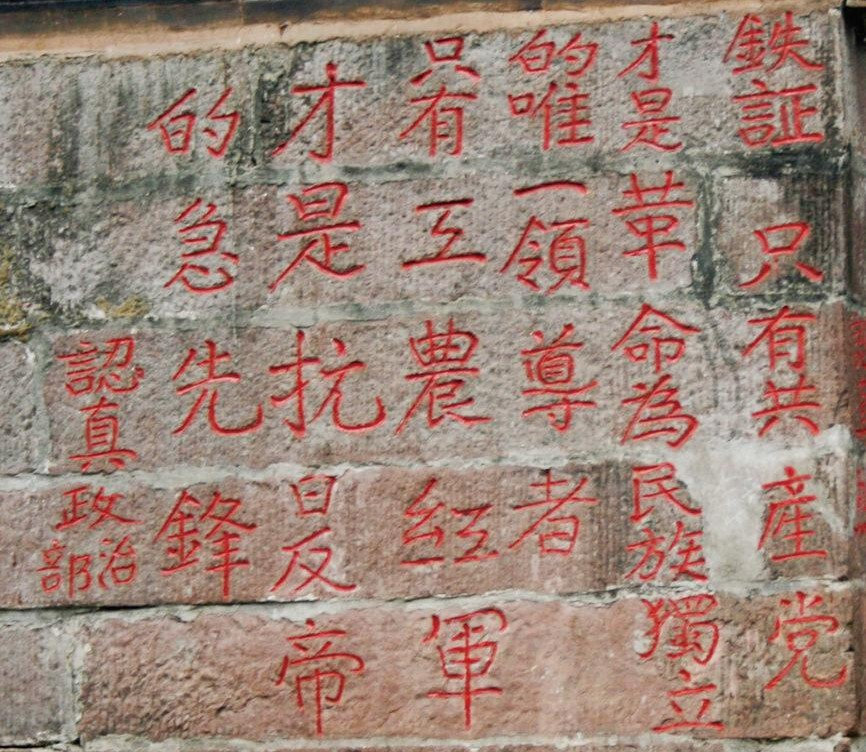 鉄証只有共產党
才是革命為民族獨立
的唯一領導者
只有工農紅軍
才是抗日反帝
的急先鋒
認真政治部